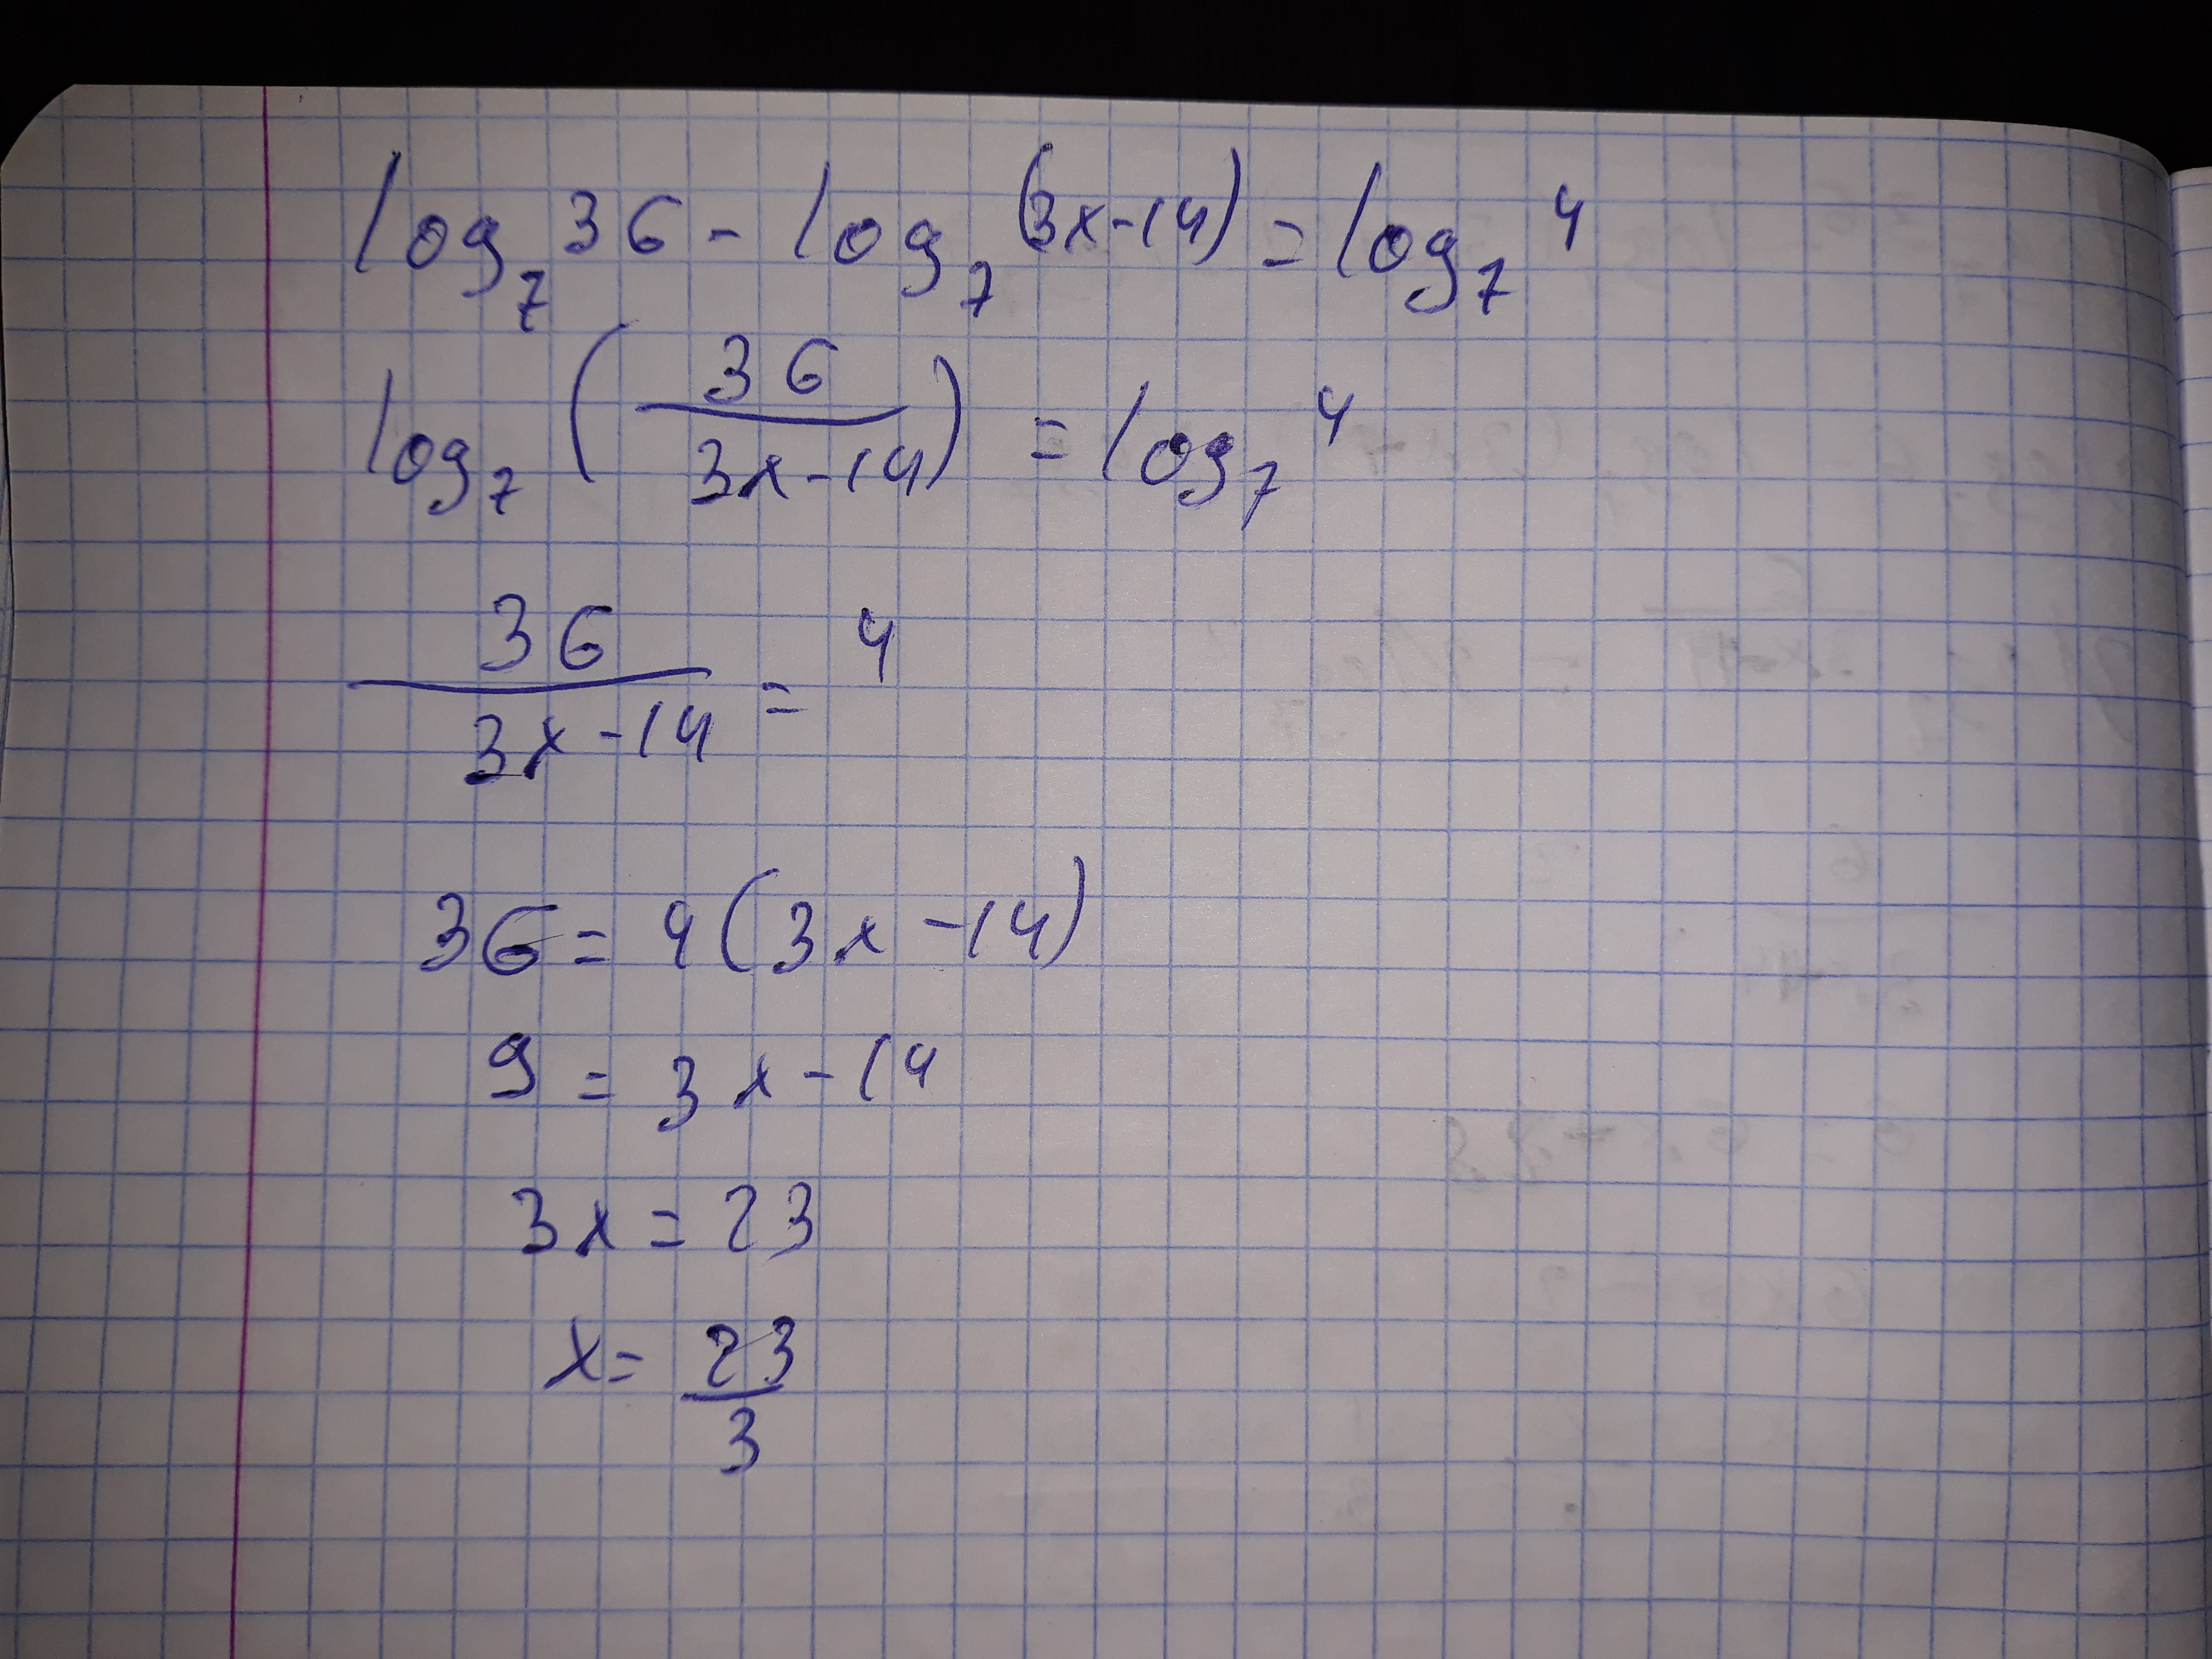 log₇ 36 - log₇ (3x-14) = log₇ 4
log₇ (36/(3x-14)) = log₇ 4
36/(3x-14) = 4
36 = 4(3x-14)
9 = 3x-14
3x = 23
x = 23/3